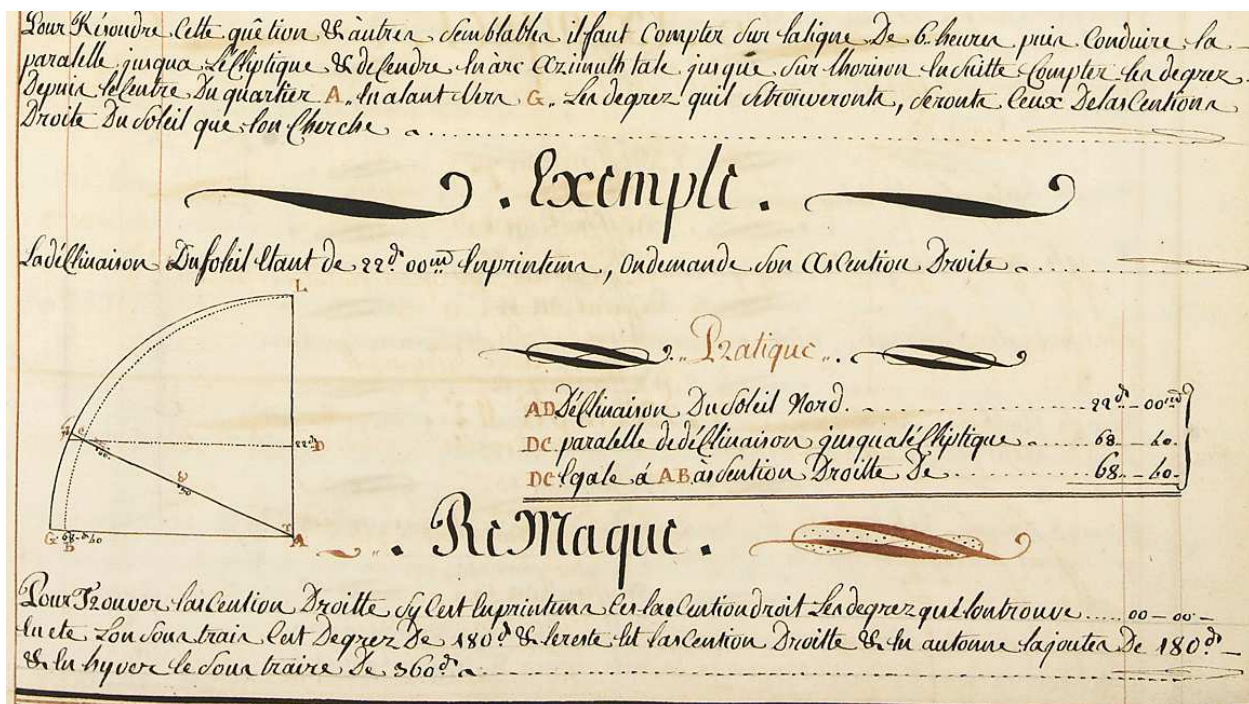 Pour Résoudre Cette quêtion & àutres Semblables il faut Compter Sur la ligne De 6. heures puis Conduire la
paralelle jusqua LéCliptique & decendre un àrc Azimuth tale jusque Sur lhorison Ensuitte Compter les degrez
Depuis le Centre Du quartier A. En alant Vers G. Les degrez quil Setrouveronts, Seronts Ceux Delascentions
Droite Du Soleil que lon Cherche
. Exemple .
LadéClinaison Du Soleil Etant de 22.d 00.m Enprintems, ondemande Son Ascention Droite
L
.. Pratique ..
AD DéClinaison Du Soleil Nord. 22.d 00.m
DC paralelle de déClinaison jusqualéCliptique 68 - 40
DC Egale á AB àscention Droitte De 68 - 40
22d D
C
50
G 68 d 40
B
A
. ReMaque .
Pour Trouver lascention Droitte Sy Cest Enprintems Ces lascention droit Les degrez que lon trouve 00 - 00
En eté Lon Soustrait Cest Degrez De 180.d & lereste Est lascention Droitte & En automne lajouter De 180.d
& En hyver le Soustraire De 360.d